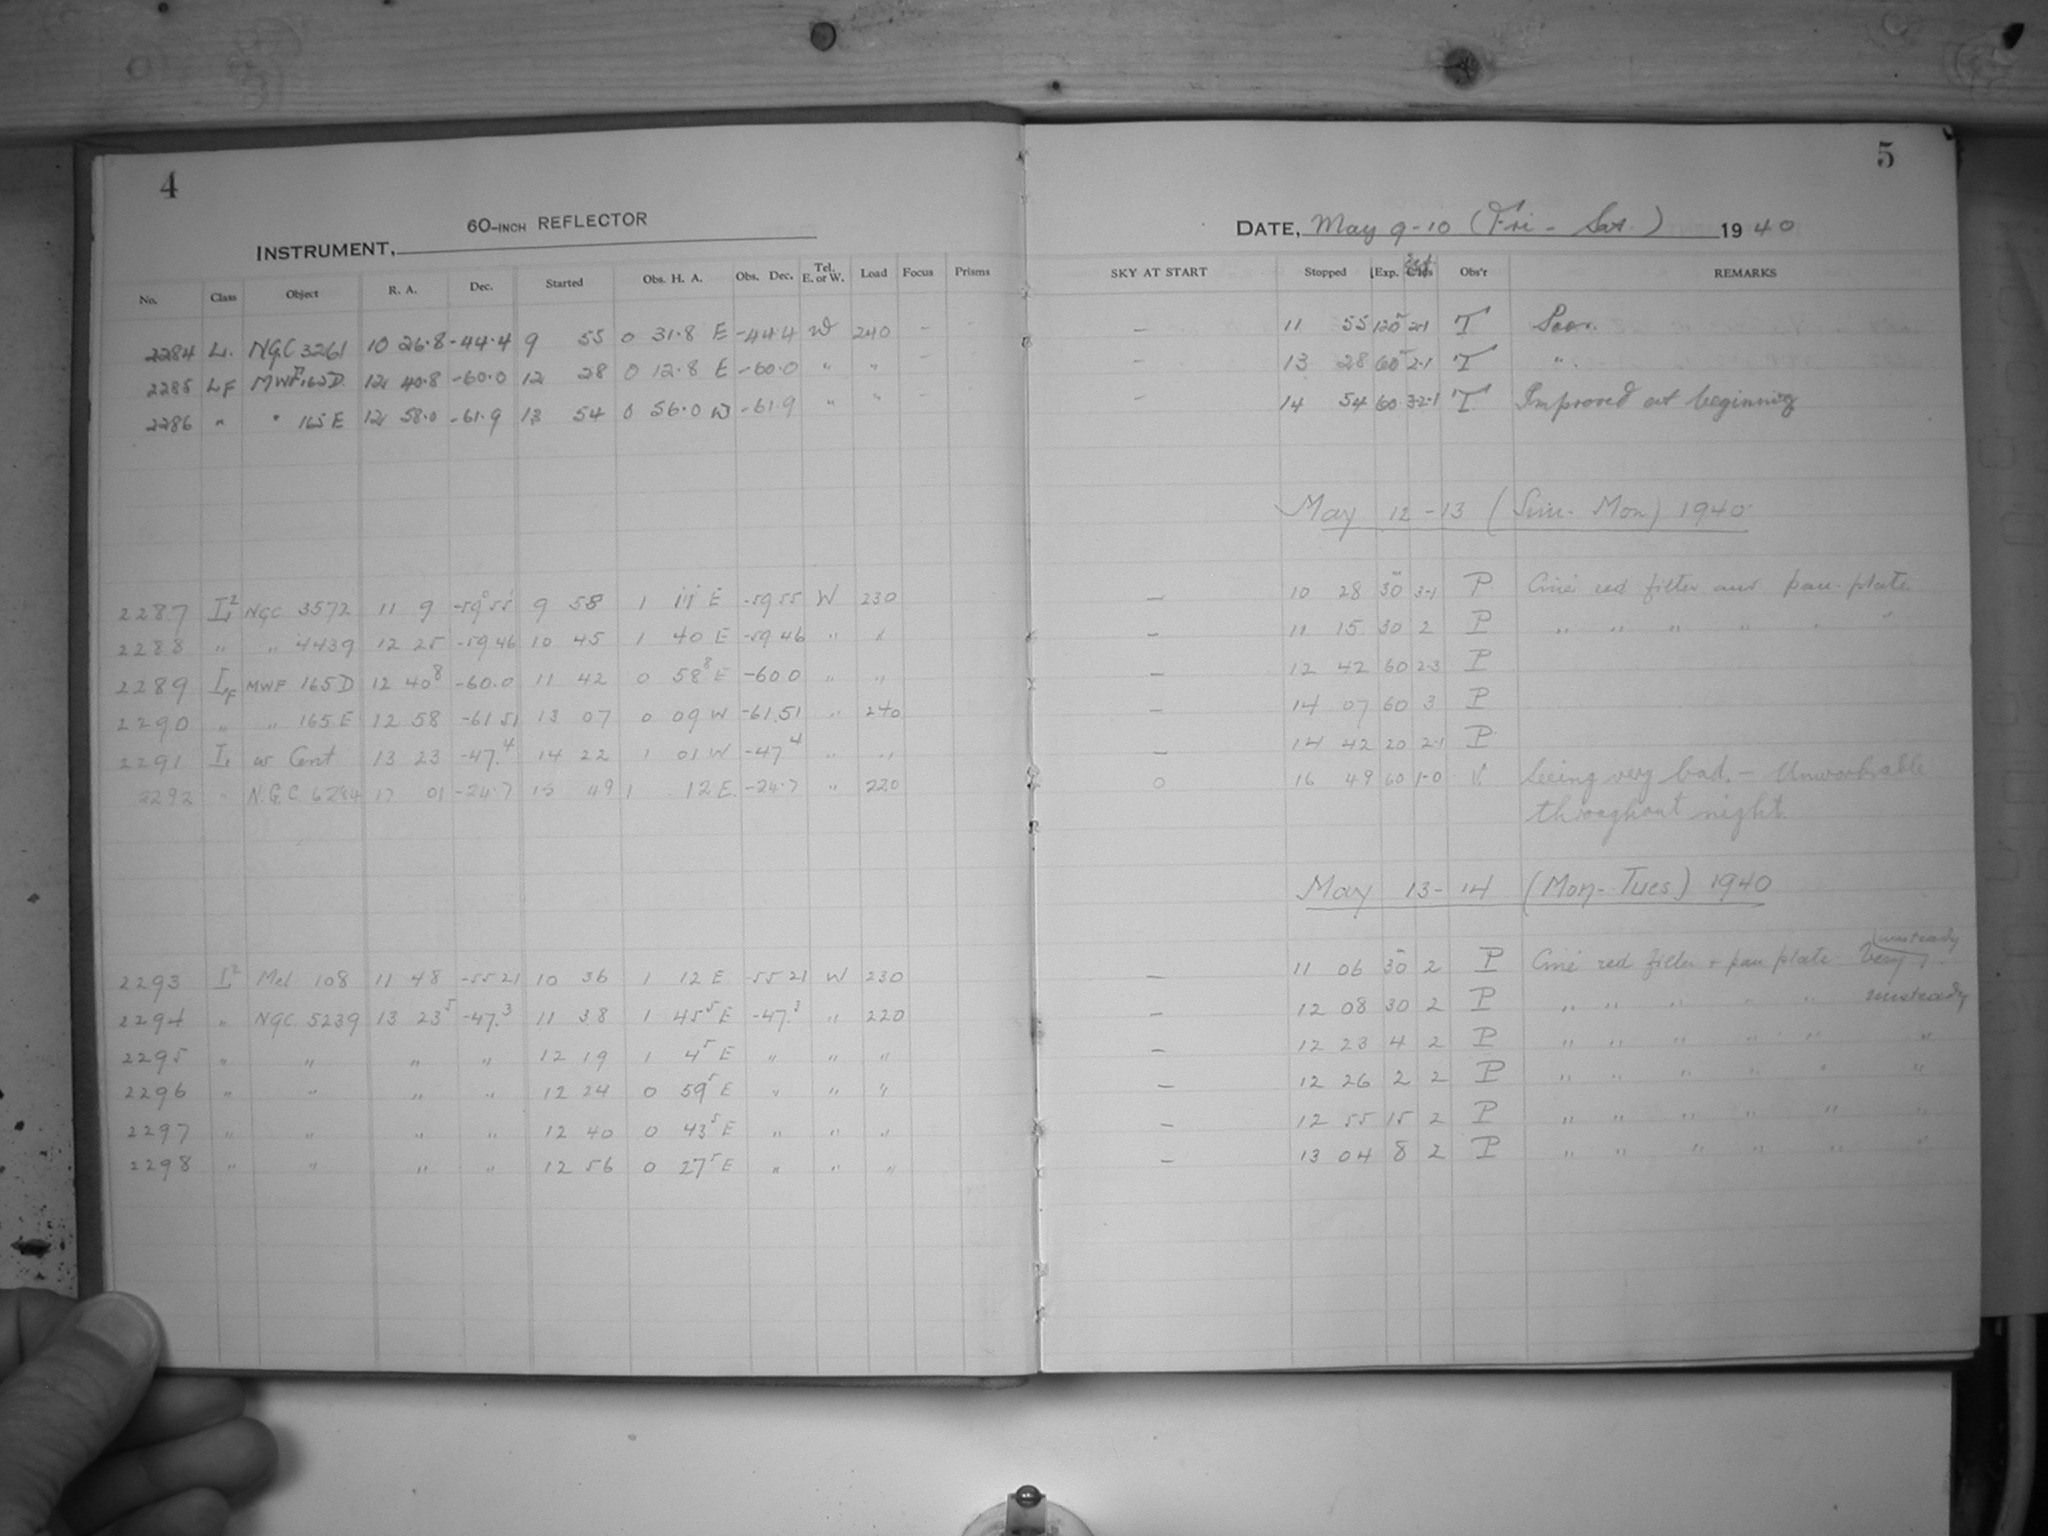 4
60-INCH REFLECTOR
INSTRUMENT,
No. Class Object R. A. Dec. Started Obs. H. A. Obs. Dec. Tel. E. or W. Load Focus Prisms
2284 L. NGC 3261 10 26.8 -44.4 9 55 0 31.8 E -44.4 W 240 - -
2285 LF MWF 165D 12 40.8 -60.0 12 28 0 12.8 E -60.0 " " -
2286 " " 165 E 12 58.0 -61.9 13 54 0 56.0 W -61.9 " " -
2287 NGC 3572 11 9 -59° 55' 9 58 1 11 E -59 55 W 230
2288 " " 4439 12 25 -59 46 10 45 1 40 E -59 46 " "
2289 MWF 165D 12 40⁸ -60.0 11 42 0 58⁸ E -60 0 " "
2290 " " 165 E 12 58 -61 51 13 07 0 09 W -61.51 " 240
2291 ω Cent 13 23 -47.⁴ 14 22 1 01 W -47.⁴ " "
2292 " N.G.C. 17 01 -24.7 15 49 1 12 E. -24.7 " 220
2293 Mel 108 11 48 -55 21 10 36 1 12 E -55 21 W 230
2294 " NGC. 5239 13 23⁵ -47.³ 11 38 1 45⁵ E -47.³ " 220
2295 " " " " 12 19 1 4⁵ E " " "
2296 " " " " 12 24 0 59⁵ E " " "
2297 " " " " 12 40 0 43⁵ E " " "
2298 " " " " 12 56 0 27⁵ E " " "
5
DATE, May 9-10 (Fri - Sat.) 1940
SKY AT START Stopped Exp. Obs'r REMARKS
- 11 55 120 2-1 T Poor.
- 13 28 60 2-1 T ".
- 14 54 60 3-2-1 T Improved at beginning
May 12-13 (Sun-Mon) 1940
- 10 28 30 3-1 P Ciné red filter and pan-plate.
- 11 15 30 2 P " " " " " "
- 12 42 60 2-3 P
- 14 07 60 3 P
- 14 42 20 2-1 P
0 16 49 60 1-0 Seeing very bad. - Unworkable
throughout night.
May 13-14 (Mon-Tues) 1940
unsteady
- 11 06 30 2 P Ciné red filter + pan plate Very
- 12 08 30 2 P " " " " " unsteady
- 12 23 4 2 P " " " " " "
- 12 26 2 2 P " " " " " "
- 12 55 15 2 P " " " " " "
- 13 04 8 2 P " " " " " "